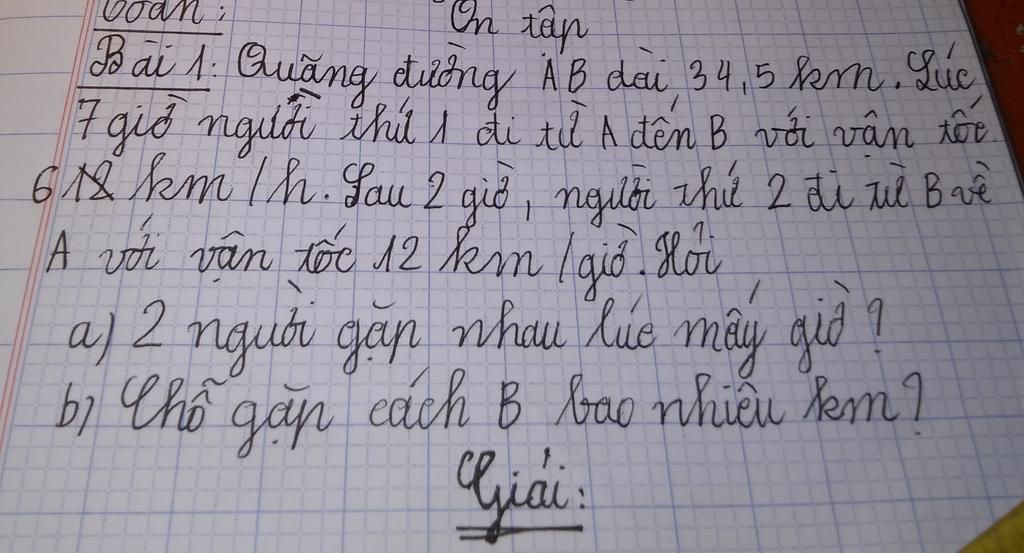 Toán: Ôn tập
Bài 1: Quãng đường AB dài 34,5 km. Lúc
7 giờ người thứ 1 đi từ A đến B với vận tốc
6 km/h. Sau 2 giờ, người thứ 2 đi từ B về
A với vận tốc 12 km/giờ. Hỏi
a) 2 người gặp nhau lúc mấy giờ?
b) Chỗ gặp cách B bao nhiêu km?
Giải: